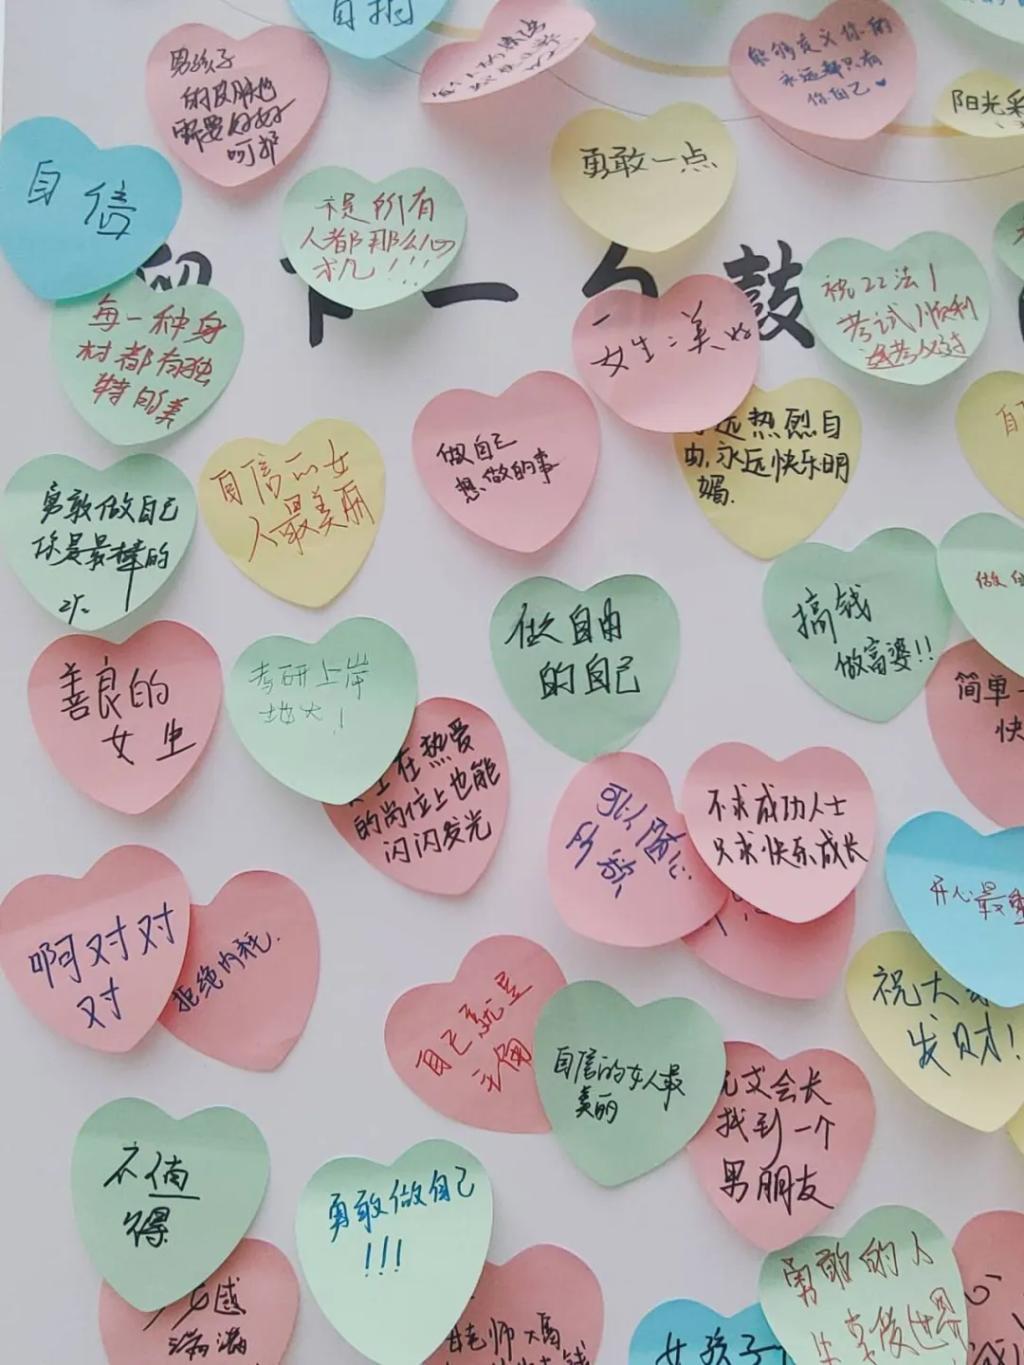 自拍
男孩子
的皮肤也
需要好好
呵护
能够定义你的
永远都只有
你自己
阳光彩
自信
不是所有
人都那么心
机！！！
勇敢一点
下一句鼓
祝22法1
考试顺利
逢考必过
每一种身
材都有独
特的美
女生：美好
远热烈自
由，永远快乐明
媚.
做自己
想做的事
自信的女
人最美丽
勇敢做自己
你是最棒的
做自由
的自己
搞钱
做富婆!!
善良的
女生
考研上岸
地大！
简单
快
在热爱
的岗位上也能
闪闪发光
可以随心
所欲
不求成功人士
只求快乐成长
开心最重
啊对对
对
拒绝内耗.
祝大家
发财！
自己就是
主角
自信的女人最
美丽
文会长
找到一个
男朋友
不值
得
勇敢做自己
!!!
勇敢的人
先享受世界
感
满满
老师
女孩子